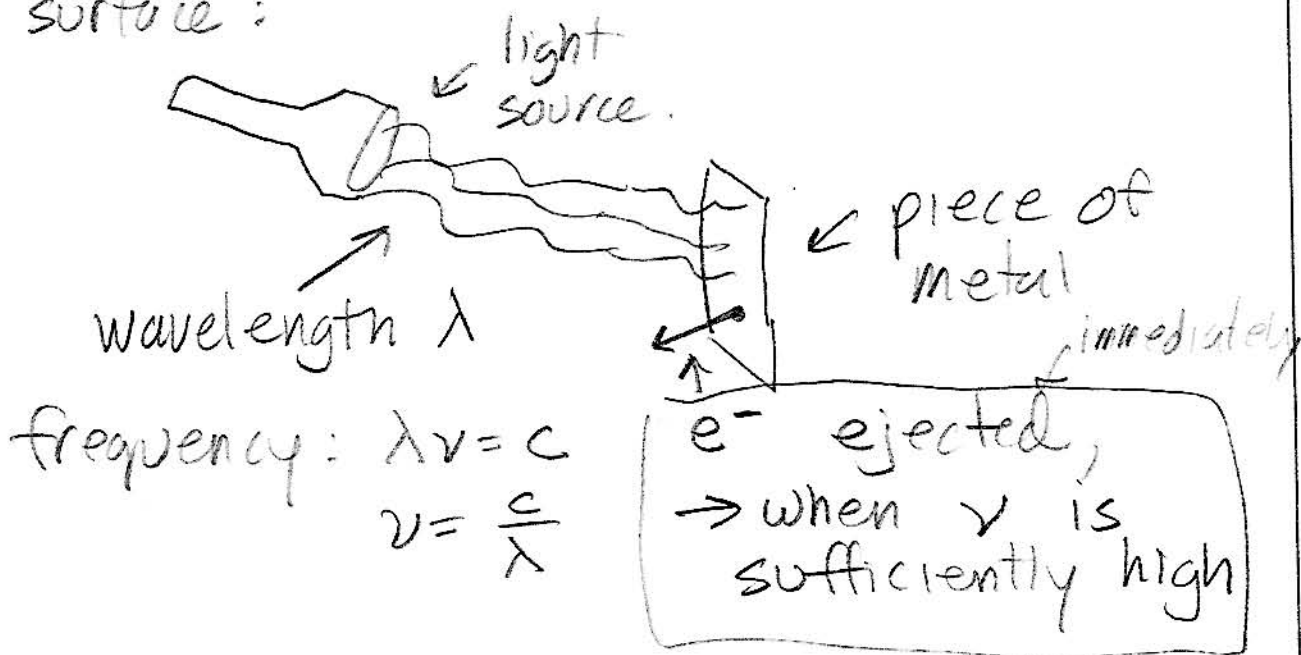 surface :
light
source.
piece of
metal
wavelength λ
immediately
frequency: λν = c
ν = c/λ
e⁻ ejected,
→ when ν is
sufficiently high